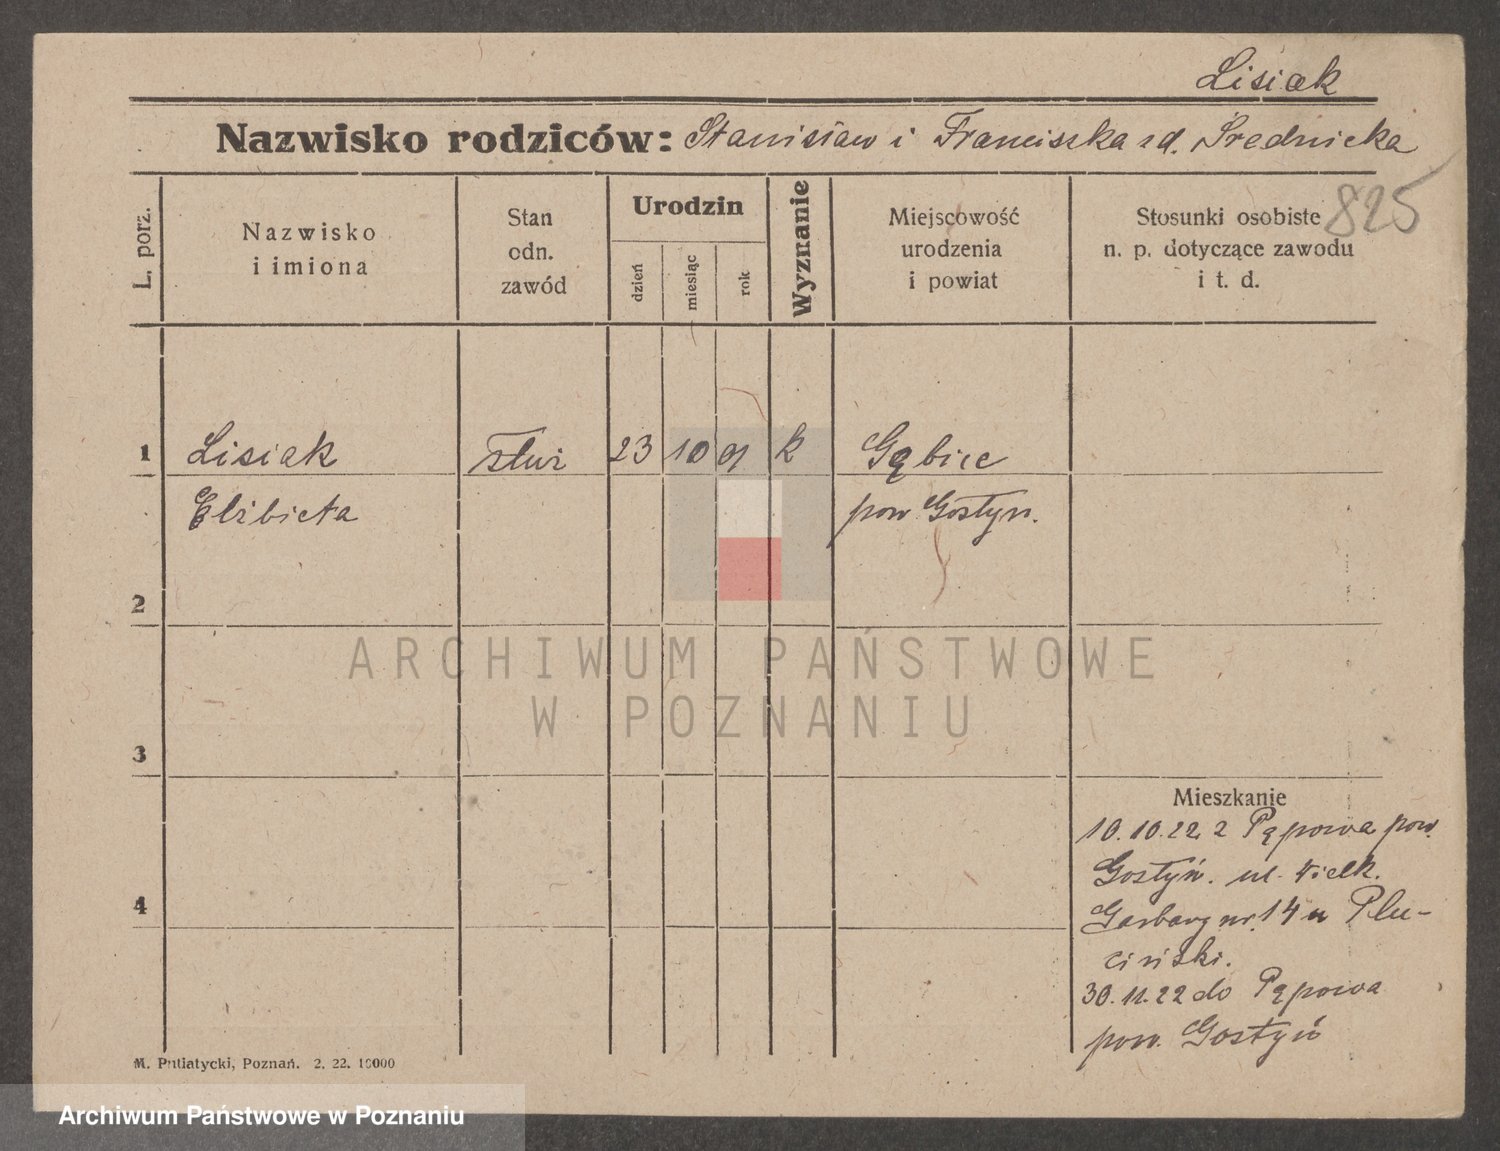 Lisiak
Nazwisko rodziców: Stanisław i Franciszka zd. Średnicka
825
L. porz.
Nazwisko
i imiona
Stan
odn.
zawód
Urodzin
dzień
miesiąc
rok
Wyznanie
Miejscowość
urodzenia
i powiat
Stosunki osobiste
n. p. dotyczące zawodu
i t. d.
1 Lisiak służ 23 10 01 k Gębice
Elżbieta pow Gostyn.
2
ARCHIWUM PAŃSTWOWE
W POZNANIU
3
Mieszkanie
10.10.22 z Pępowa pow.
Gostyń. ul. Wielk.
4
Garbary nr. 14 u Plu-
ciński.
30.11.22 do Pępowa
pow. Gostyń
M. Putiatycki, Poznań. 2. 22. 10000
Archiwum Państwowe w Poznaniu